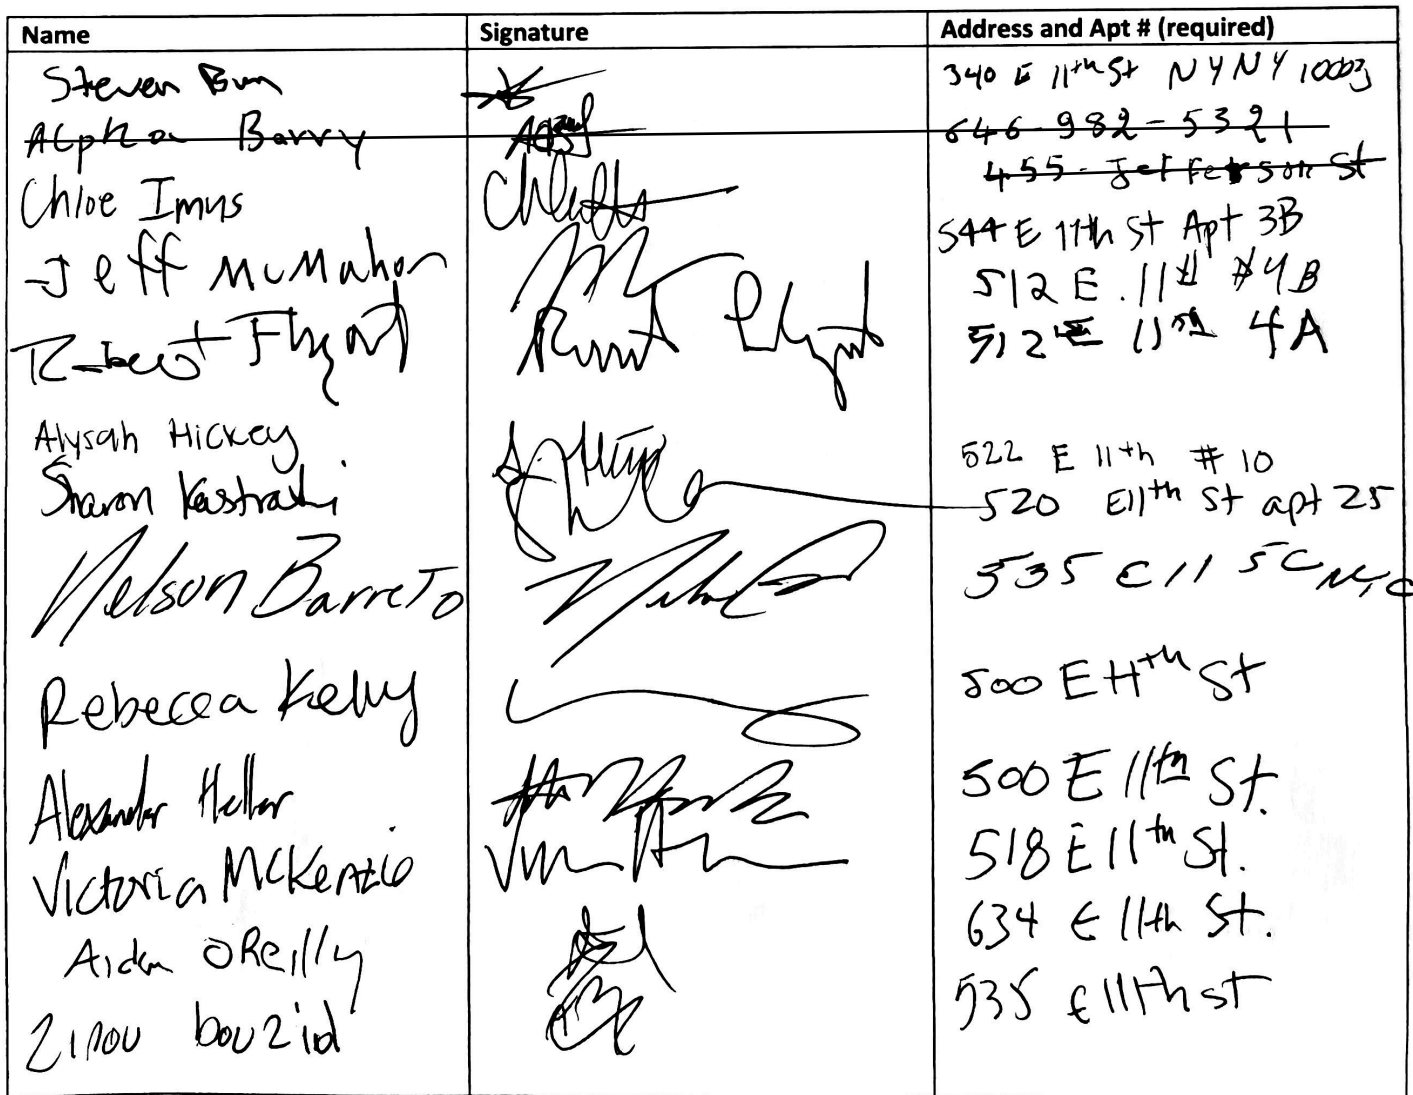 Name Signature Address and Apt # (required)
Steven 340 E 11th St NY NY 10003
Alpha Barry 646-982-5321
455- Jefferson St
Chloe Imus 544 E 11th St Apt 3B
Jeff McMahon 512 E. 11th #4B
Robert 512 E 11th 4A
Alysah Hickey 522 E 11th #10
Sharon Kastrati 520 E 11th St apt 25
Nelson Barreto 535 E 11 5C NYC
Rebecca Kelly 500 E 11th St
Alexander Heller 500 E 11th St.
Victoria McKenzie 518 E 11th St.
Aidan OReilly 634 E 11th St.
Zinou bouzid 535 E 11th st